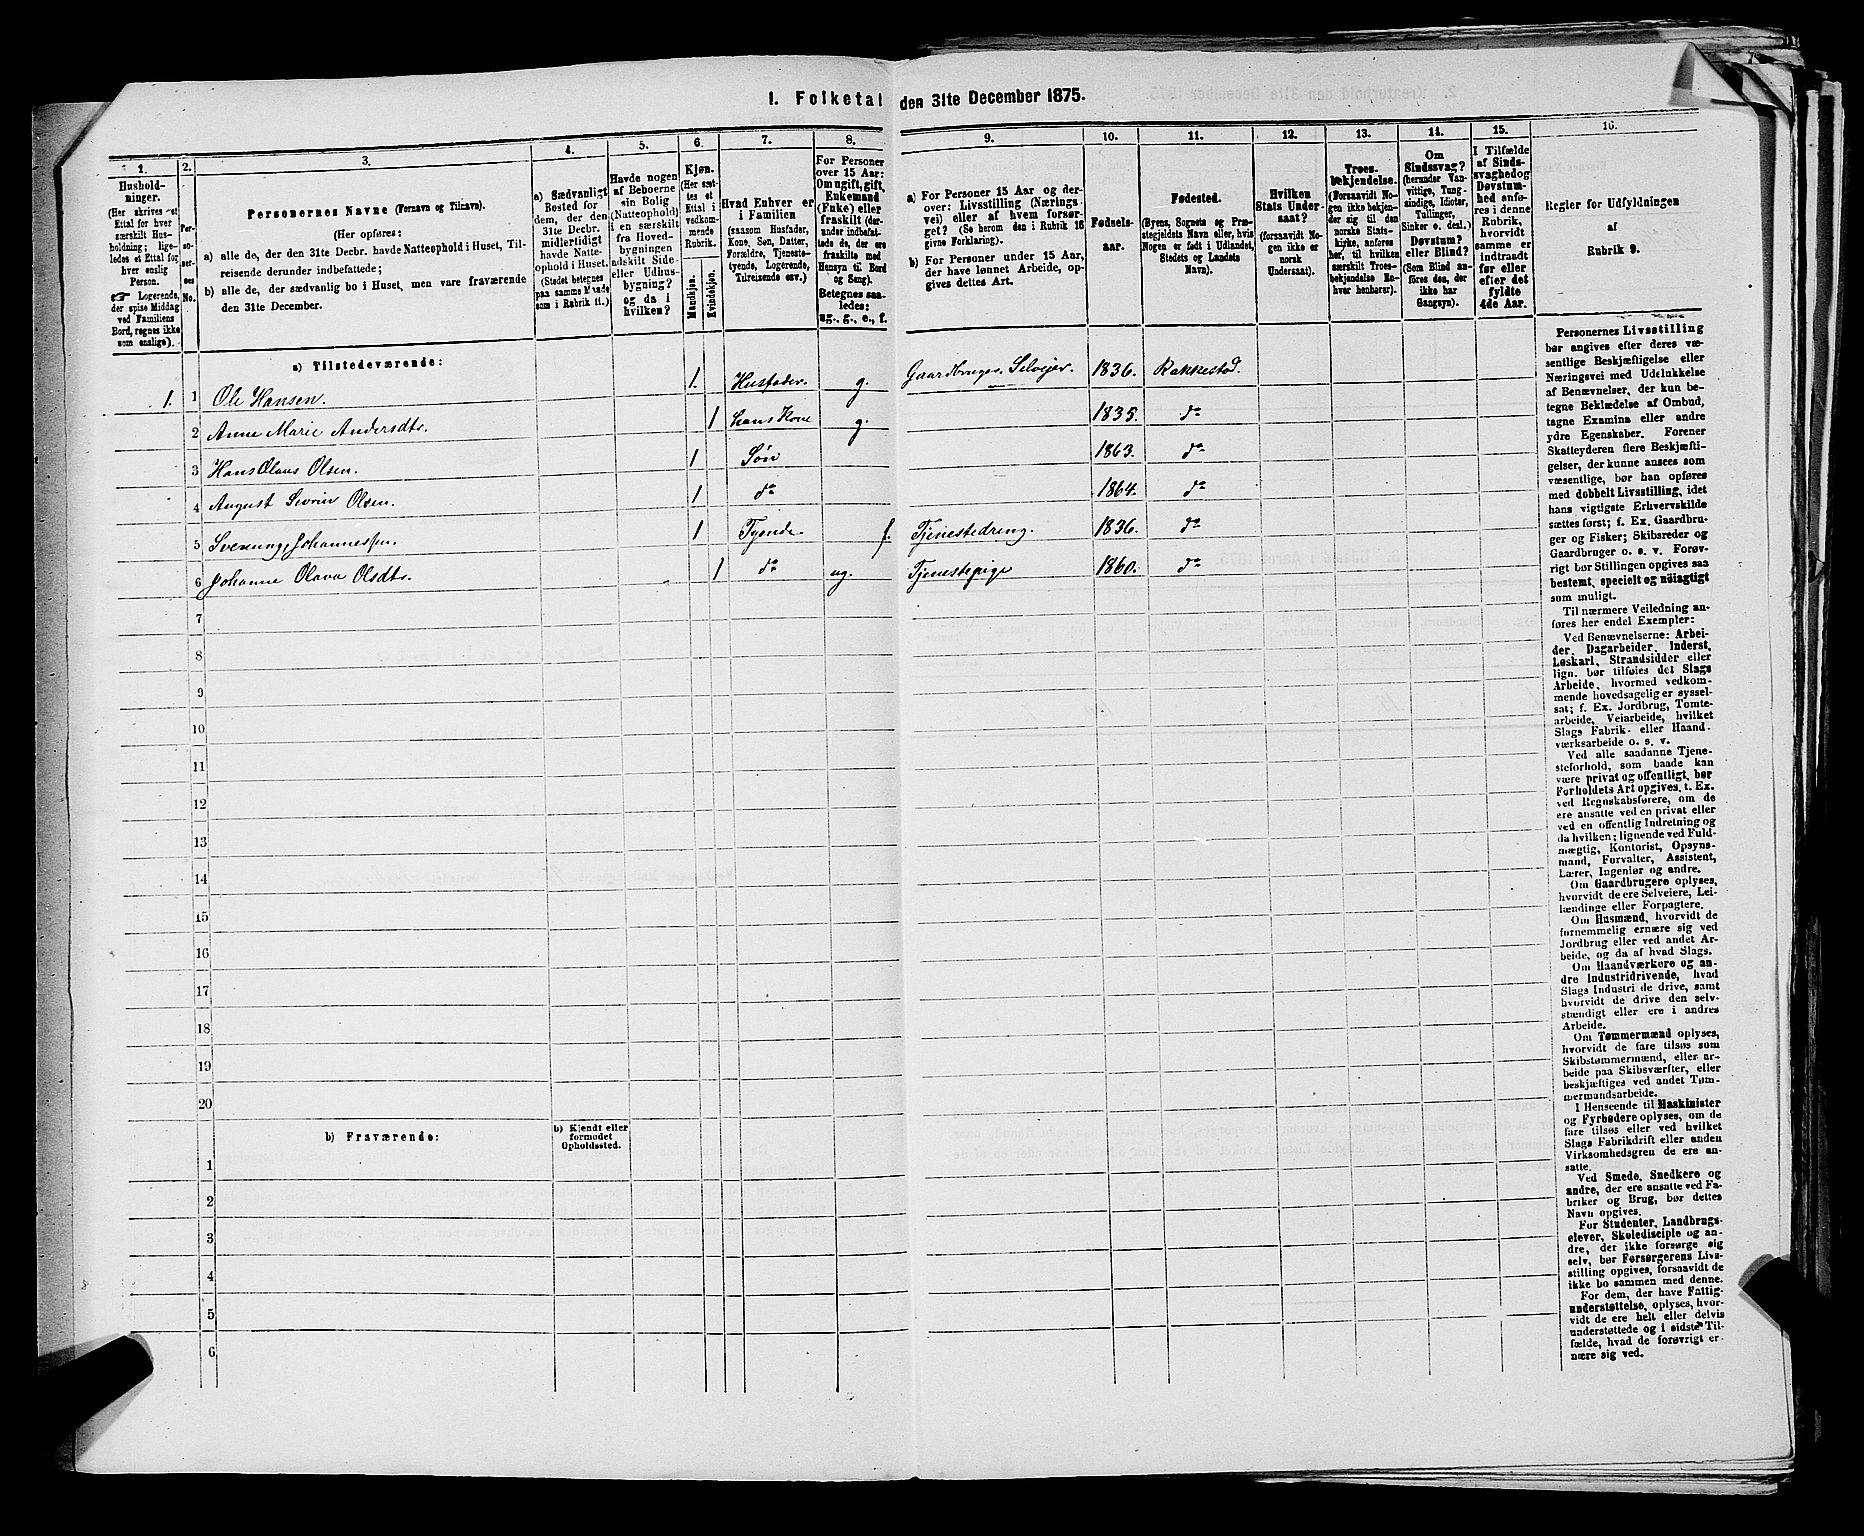 1. Folketal den 31te December 1875.
1.
Hushold-
ninger.
(Her skrives et
Ettal for hver
særskilt Hus-
holdning; lige-
ledes et Ettal for
hver enslig
Person.
☞ Logerende,
der spise Middag
ved Familiens
Bord, regnes ikke
som enslige).
2.
Per-
so-
ner-
nes
No.
3.
Personernes Navne (Fornavn og Tilnavn).
(Her opføres:
a) alle de, der den 31te Decbr. havde Natteophold i Huset, Til-
reisende derunder indbefattede;
b) alle de, der sædvanlig bo i Huset, men vare fraværende
den 31te December.
4.
a) Sædvanligt
Bosted for
dem, der den
31te Decbr.
midlertidigt
havde Natte-
ophold i Huset.
(Stedet betegnes
paa samme Maade
som i Rubrik 11.)
5.
Havde nogen
af Beboerne
sin Bolig
(Natteophold)
i en særskilt
fra Hoved-
bygningen
adskilt Side-
eller Udhus-
bygning?
og da i
hvilken?
6.
Kjøn.
(Her sæt-
tes et
Ettal i
vedkom-
mende
Rubrik.
Mandkjøn.
Kvindekjøn.
7.
Hvad Enhver er
i Familien
(saasom Husfader,
Kone, Søn, Datter,
Forældre, Tjeneste-
tyende, Logerende,
Tilreisende osv.)
8.
For Personer
over 15 Aar:
Om ugift, gift,
Enkemand
(Enke) eller
fraskilt (der-
under indbefat-
tede de, der ere
fraskilte med
Hensyn til Bord
og Seng).
Betegnes saa-
ledes:
ug., g., e., f.
9.
a) For Personer 15 Aar og der-
over: Livsstilling (Nærings-
vei) eller af hvem forsør-
get? (Se herom den i Rubrik 16
givne Forklaring).
b) For Personer under 15 Aar,
der have lønnet Arbeide, op-
gives dettes Art.
10.
Fødsels-
aar.
11.
Fødested.
(Byens, Sognets og Præ-
stegjeldets Navn eller, hvis
Nogen er født i Udlandet,
Stedets og Landets
Navn).
12.
Hvilken
Stats Under-
saat?
(forsaavidt No-
gen ikke er
norsk
Undersaat).
13.
Troes-
bekjendelse.
(Forsaavidt No-
gen ikke bekjen-
der sig til den
norske Stats-
kirke, anføres
her, til hvilken
særskilt Troes-
bekjendelse En-
hver henhører).
14.
Om
Sindssvag?
(herunder Van-
vittige, Tung-
sindige, Idioter,
Tullinger,
Sinker o. desl.)
Døvstum?
eller Blind?
(Som Blind an-
føres den, der
ikke har
Gangsyn).
15.
I Tilfælde
af Sinds-
svaghed og
Døvstum-
hed anfø-
res i denne
Rubrik,
hvorvidt
samme er
indtraadt
før eller
efter det
fyldte
4de Aar.
16.
Regler for Udfyldningen
af
Rubrik 9.
a) Tilstedeværende:
1. 1 Ole Hansen. 1. Husfader g. Gaardbruger Selvejer 1836. Rakkestad.
2 Anne Marie Andersdtr. 1 hans Kone g. 1835. do
3 Hans Olaus Olsen. 1 Søn 1863. do
4 August Sevrin Olsen. 1 do 1864. do
5 Svenung Johannessen. 1 Tyende f. Tjenestedreng. 1836. do
6 Johanne Olava Olsdtr. 1 do ug. Tjenestepige 1860. do
7
8
9
10
11
12
13
14
15
16
17
18
19
20
b) Fraværende:
b) Kjendt eller
formodet
Opholdssted.
1
2
3
4
5
6
Personernes Livsstilling
bør angives efter deres væ-
sentlige Beskjæftigelse eller
Næringsvei med Udelukkelse
af Benævnelser, der kun be-
tegne Beklædelse af Ombud,
tagne Examina eller andre
ydre Egenskaber. Forener
Skatteyderen flere Beskjæfti-
gelser, der kunne ansees som
væsentlige, bør han opføres
med dobbelt Livsstilling, idet
hans vigtigste Erhvervskilde
sættes først; f. Ex. Gaardbru-
ger og Fisker; Skibsreder og
Gaardbruger o. s. v. Forøv-
rigt bør Stillingen opgives saa
bestemt, specielt og nøiagtigt
som muligt.
Til nærmere Veiledning an-
føres her endel Exempler:
Ved Benævnelserne: Arbei-
der, Dagarbeider, Inderst,
Løskarl, Strandsidder eller
lign. bør tilføies det Slags
Arbeide, hvormed vedkom-
mende hovedsagelig er syssel-
sat; f. Ex. Jordbrug, Tomte-
arbeide, Veiarbeide, hvilket
Slags Fabrik- eller Haand-
værksarbeide o. s. v.
Ved alle saadanne Tjene-
steforhold, som baade kan
være privat og offentligt, bør
Forholdets Art opgives, t. Ex.
ved Regnskabsførere, om de
ere ansatte ved en privat eller
ved en offentlig Indretning og
da hvilken; lignende ved Fuld-
mægtig, Kontorist, Opsyns-
mand, Forvalter, Assistent,
Lærer, Ingeniør og andre.
Om Gaardbrugere oplyses,
hvorvidt de ere Selveiere, Lei-
lændinge eller Forpagtere.
Om Husmænd, hvorvidt de
fornemmelig ernære sig ved
Jordbrug eller ved andet Ar-
beide, og da af hvad Slags.
Om Haandværkere og an-
dre Industridrivende, hvad
Slags Industri de drive, samt
hvorvidt de drive den selv-
stændigt eller ere i andres
Arbeide.
Om Tømmermænd oplyses,
hvorvidt de fare tilsøs som
Skibstømmermænd, eller ar-
beide paa Skibsværfter, eller
beskjæftiges ved andet Tøm-
mermandsarbeide.
I Henseende til Maskinister
og Fyrbødere oplyses, om de
fare tilsøs eller ved hvilket
Slags Fabrikdrift eller anden
Virksomhedsgren de ere an-
satte.
Ved Smede, Snedkere og
andre, der ere ansatte ved Fa-
briker og Brug, bør dettes
Navn opgives.
For Studenter, Landbrugs-
elever, Skoledisciple og an-
dre, der ikke forsørge sig
selv, bør Forsørgerens Livs-
stilling opgives, forsaavidt de
ikke bo sammen med denne.
For dem, der have Fattig-
understøttelse, oplyses, hvor-
vidt de ere helt eller delvis
understøttede og i sidste Til-
fælde, hvad de forøvrigt er-
nære sig ved.